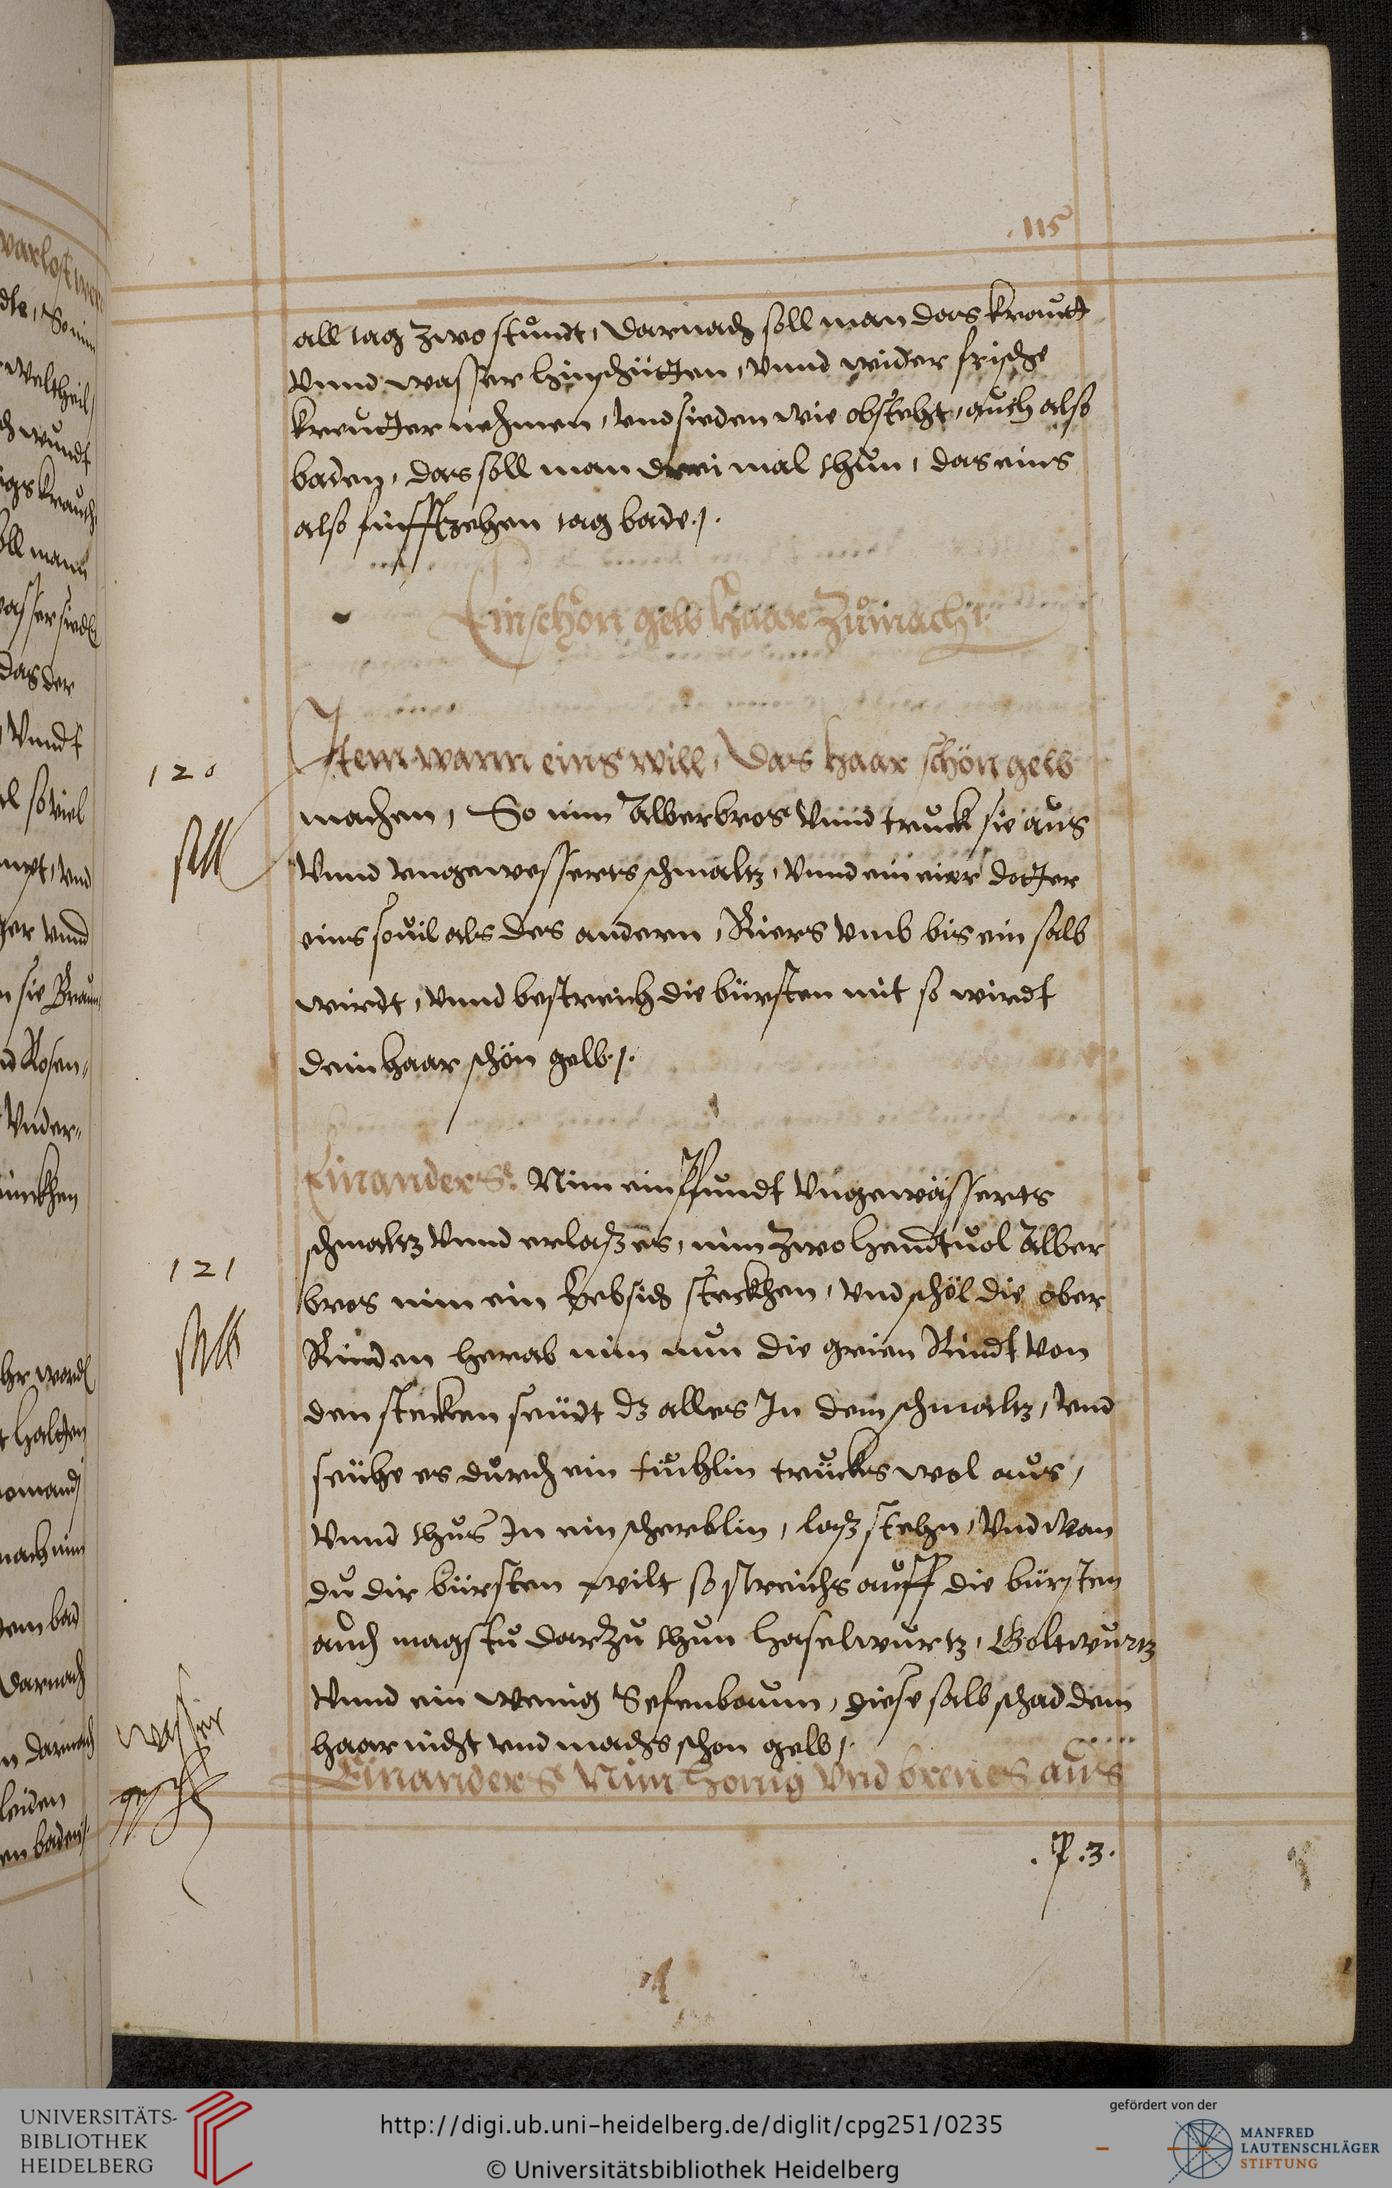 .115
all tag zwo stundt, darnach soll man das krautt
vnnd wasser hinschütten, vnnd wider frische
kreutter nehmen, vnd sieden wie obsteht, auch also
baden, das soll man drei mal thun, das eins
also funfftzehen tag bade./.
Ein schön gelb Haar zumach[e]n.
Item wann eins will, das haar schön gelb
120
machen, So nim Alberbros vnnd truck sie aus
salb
vnnd vngewesserts schmaltz, vnnd ein eier dotter
eins souil als des andern, Riers vmb bis ein salb
wirdt, vnnd bestreich die bürsten mit so wirdt
dein haar schön gelb./.
Ein anders. Nim ein pfundt vngewässerts
schmaltz vnnd erlaß es, nim zwo hendtuol Alber
121
bros nim ein steckhen, vnd schöl die ober
salb
Rinden herab nim nun die grien Rindt von
den stecken seudt dz alles In dem schmaltz, vnd
seühe es durch ein tüchlin truckhs wol aus,
vnnd thus In ein scherblin, laß stehn, vnd wan
du dir bürsten wilt so streichs auff die bürsten
auch magstu darzu thun haselwurtz, Goltwurtz
vnnd ein wenig Sefenbaum, diese salb schad dem
wasser
haar nicht vnd machs schon gelb/.
Ein anders Nim honig vnd bren es aus
.P.3.
UNIVERSITÄTS-
BIBLIOTHEK
HEIDELBERG
http://digi.ub.uni-heidelberg.de/diglit/cpg251/0235
© Universitätsbibliothek Heidelberg
gefördert von der
MANFRED
LAUTENSCHLÄGER
STIFTUNG